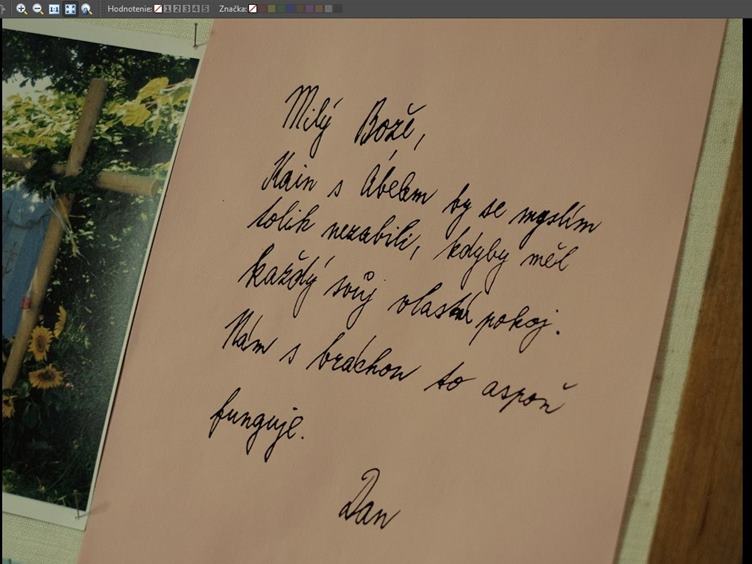 Hodnotenie: 1 2 3 4 5 Značka:
Milý Bože,
Kain s Ábelem by se myslím
tolik nezabili, kdyby měl
každý svůj vlastní pokoj.
Nám s bráchou to aspoň
funguje.
Dan